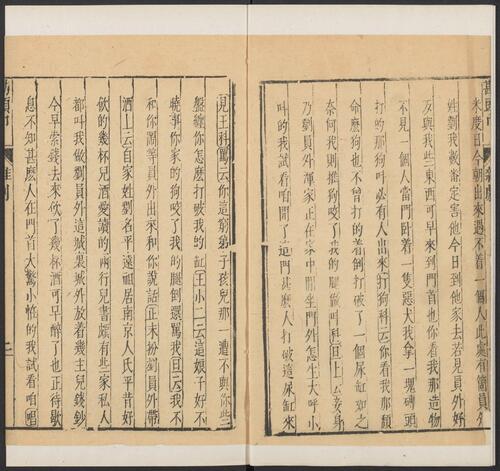 米度日今朝出來遇不着一個人此處有箇員外
姓劉我戴着定害他今日到他家去若見員外好
反與我些東西可早來到門首也你看我那造物
不見一個人當門臥着一隻惡犬我拿一塊磚頭
打的那狗叫必有人出來打狗科云你看我那頹
命麽狗也不曾打的着倒打破了一個尿缸如之
奈何我則推狗咬了我的腿做叫科旦上云妾身
乃劉員外渾家正在家中閒坐門外怎生大呼小
叫的我試看咱開了這門甚麽人打破這尿缸來
見王科罵云你這窮弟子孩兒那一遭不與你些
盤纏你怎麽打破我的缸王小二云這娘子好不
曉事你家的狗咬了我的腿倒還罵我旦云我不
和你鬧等員外出來和你說話正末扮劉員外帶
酒上云自家姓劉名平遠祖居南京人氏平昔好
飲的幾杯兒酒愛讀的兩行兒書頗有些家私人
都叫我做劉員外這城裏城外放着幾主兒錢鈔
今早索錢去來飲了幾杯酒可早醉了也正待歇
息不知甚麽人在門首大驚小怪的我試看咱唱